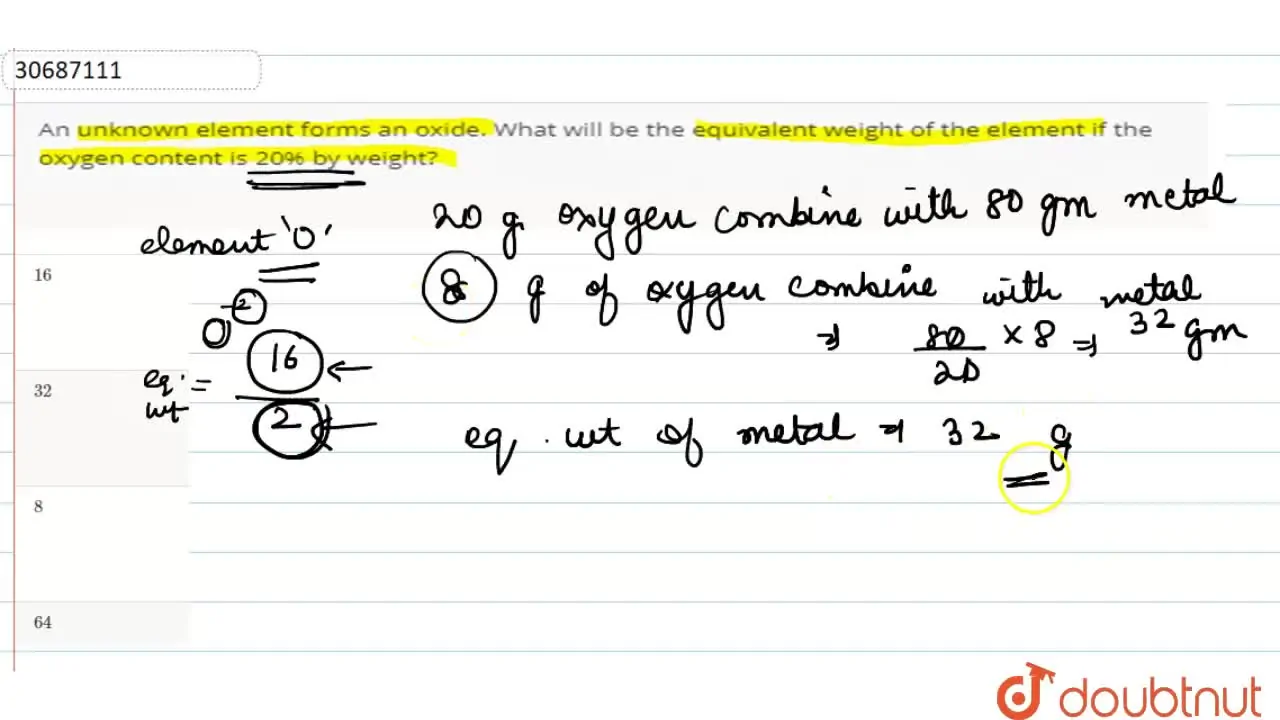 30687111
An unknown element forms an oxide. What will be the equivalent weight of the element if the
oxygen content is 20% by weight?
element 'O'
20 g. oxygen combine with 80 gm metal
16
8 g of oxygen combine with metal
⇒ 80/20 × 8 ⇒ 32 gm
O⁻²
eq. wt = 16/2
32
eq. wt of metal ⇒ 32 g
8
64
doubtnut